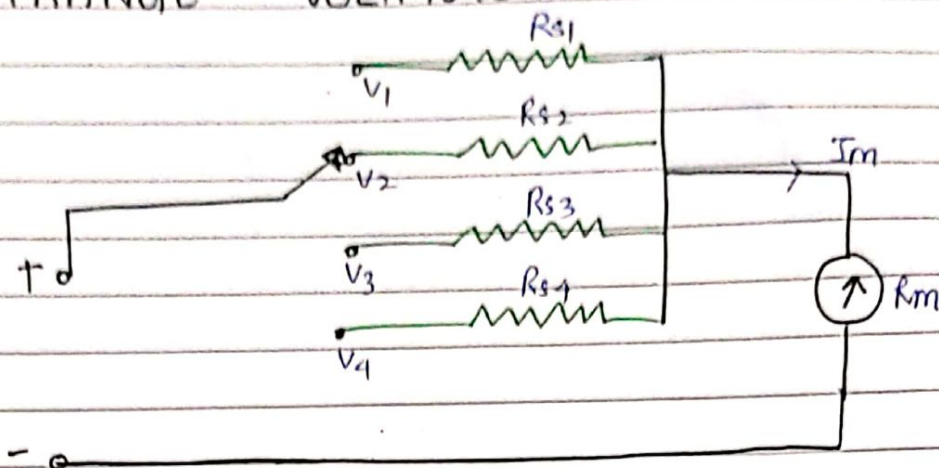 Rs1
V1
Rs2
V2
Im
Rs3
V3
+
Rs4
Rm
V4
-